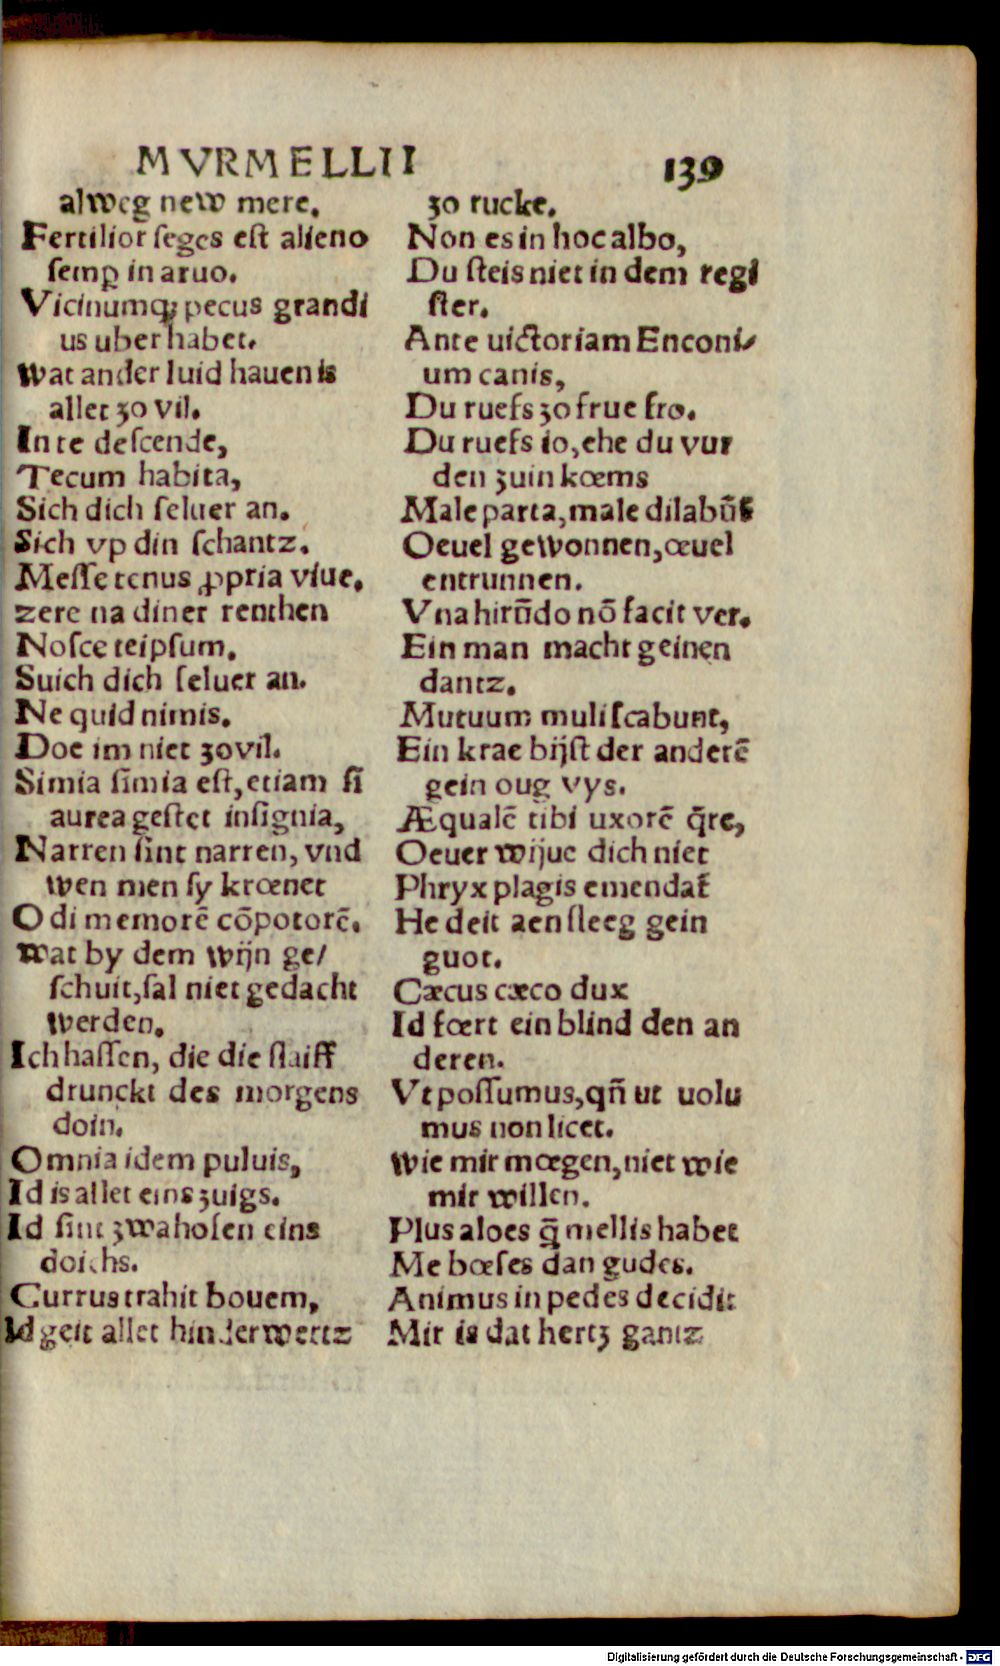 MVRMELLII 139
alweg new mere.
Fertilior seges est alieno
semꝑ in aruo.
Vicinumq; pecus grandi
us uber habet.
Wat ander luid hauen is
allet zo vil.
In te descende,
Tecum habita,
Sich dich seluer an.
Sich vp din schantz.
Messe tenus ꝓpria viue.
zere na diner renthen
Nosce teipsum.
Suich dich seluer an.
Ne quid nimis.
Doe im niet zo vil.
Simia simia est, etiam si
aurea gestet insignia,
Narren sint narren, vnd
wen men sy krœnet
Odi memorē cōpotorē.
wat by dem wijn ge/
schuit, sal niet gedacht
werden.
Ich hassen, die die staiff
drunckt des morgens
doin.
Omnia idem puluis,
Id is allet eins zuigs.
Id sint zwa hosen eins
doichs.
Currus trahit bouem,
Id geit allet hinderwertz
zo rucke.
Non es in hoc albo,
Du steis niet in dem regi
ster.
Ante uictoriam Enconi-
um canis,
Du ruefs zo frue fro.
Du ruefs io, ehe du vur
den zuin kœms
Male parta, male dilabūt
Oeuel gewonnen, œuel
entrunnen.
Vna hirūdo nō facit ver.
Ein man macht geinen
dantz.
Mutuum muli scabunt,
Ein krae bijst der anderē
gein oug vys.
Æqualē tibi uxorē q̄re,
Oeuer wijue dich niet
Phryx plagis emendat᷑
He deit aen sleeg gein
guot.
Cæcus cæco dux
Id fœrt ein blind den an
deren.
Vt possumus, qn̄ ut uolu
mus non licet.
Wie mir mœgen, niet wie
mir willen.
Plus aloes q̄ mellis habet
Me bœses dan gudes.
Animus in pedes decidit
Mir is dat hertz gantz
Digitalisierung gefördert durch die Deutsche Forschungsgemeinschaft - DFG